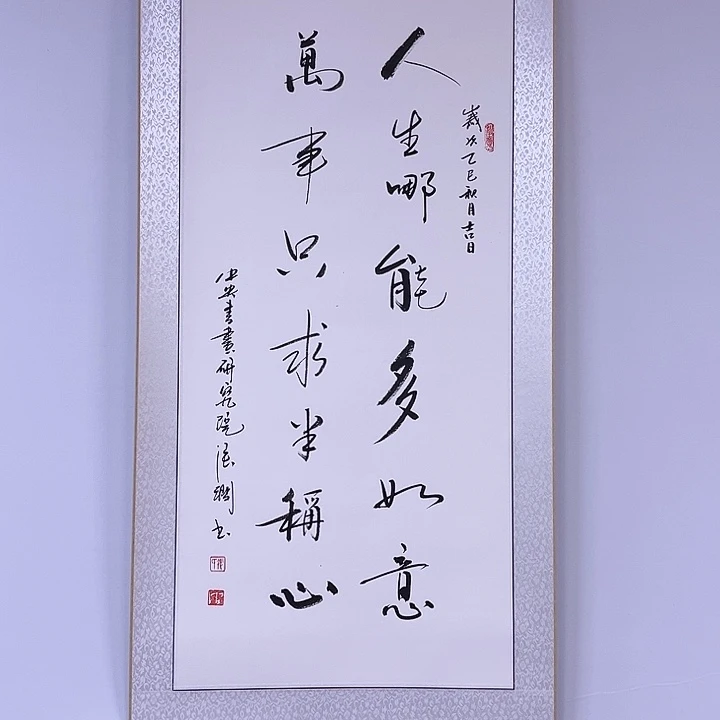 歲次乙巳秋月吉日
人生哪能多如意
萬事只求半稱心
中央書畫研究院 書